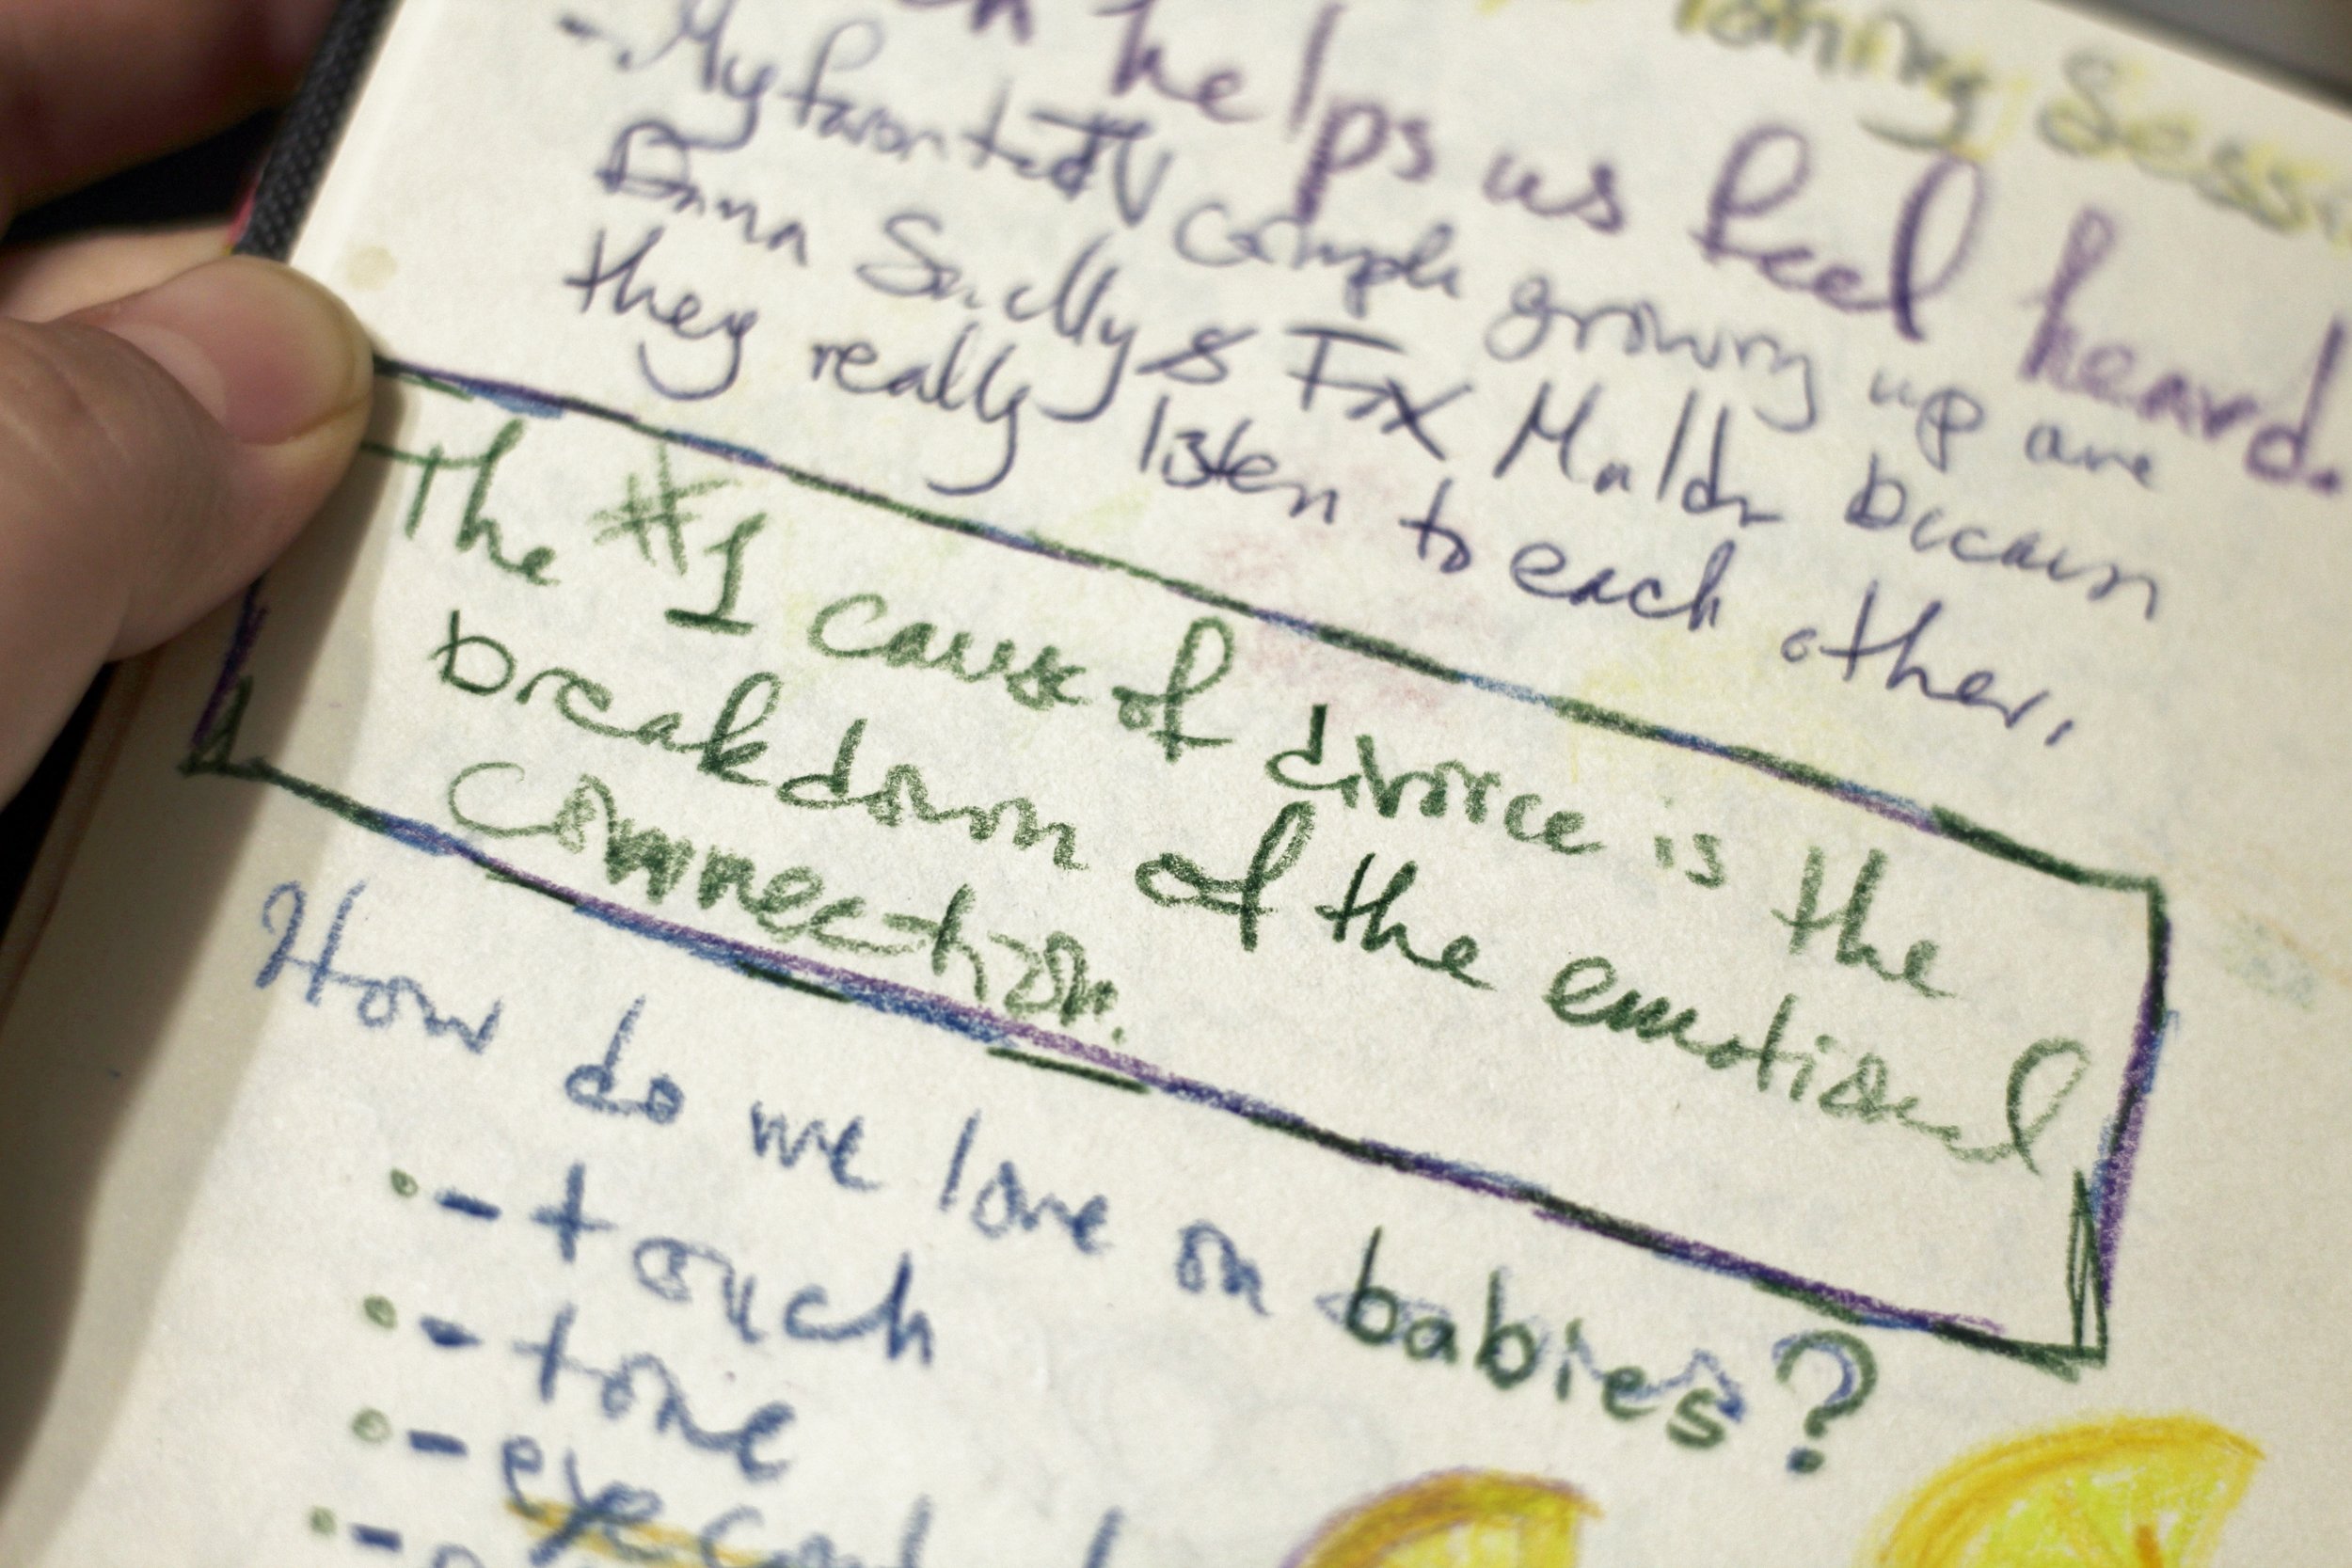 helps us feel heard.
- My favorite TV couple growing up are
Dana Scully & Fox Mulder because
they really listen to each other.
The #1 cause of divorce is the
breakdown of the emotional
connection.
How do we love on babies?
- touch
- tone
- eye